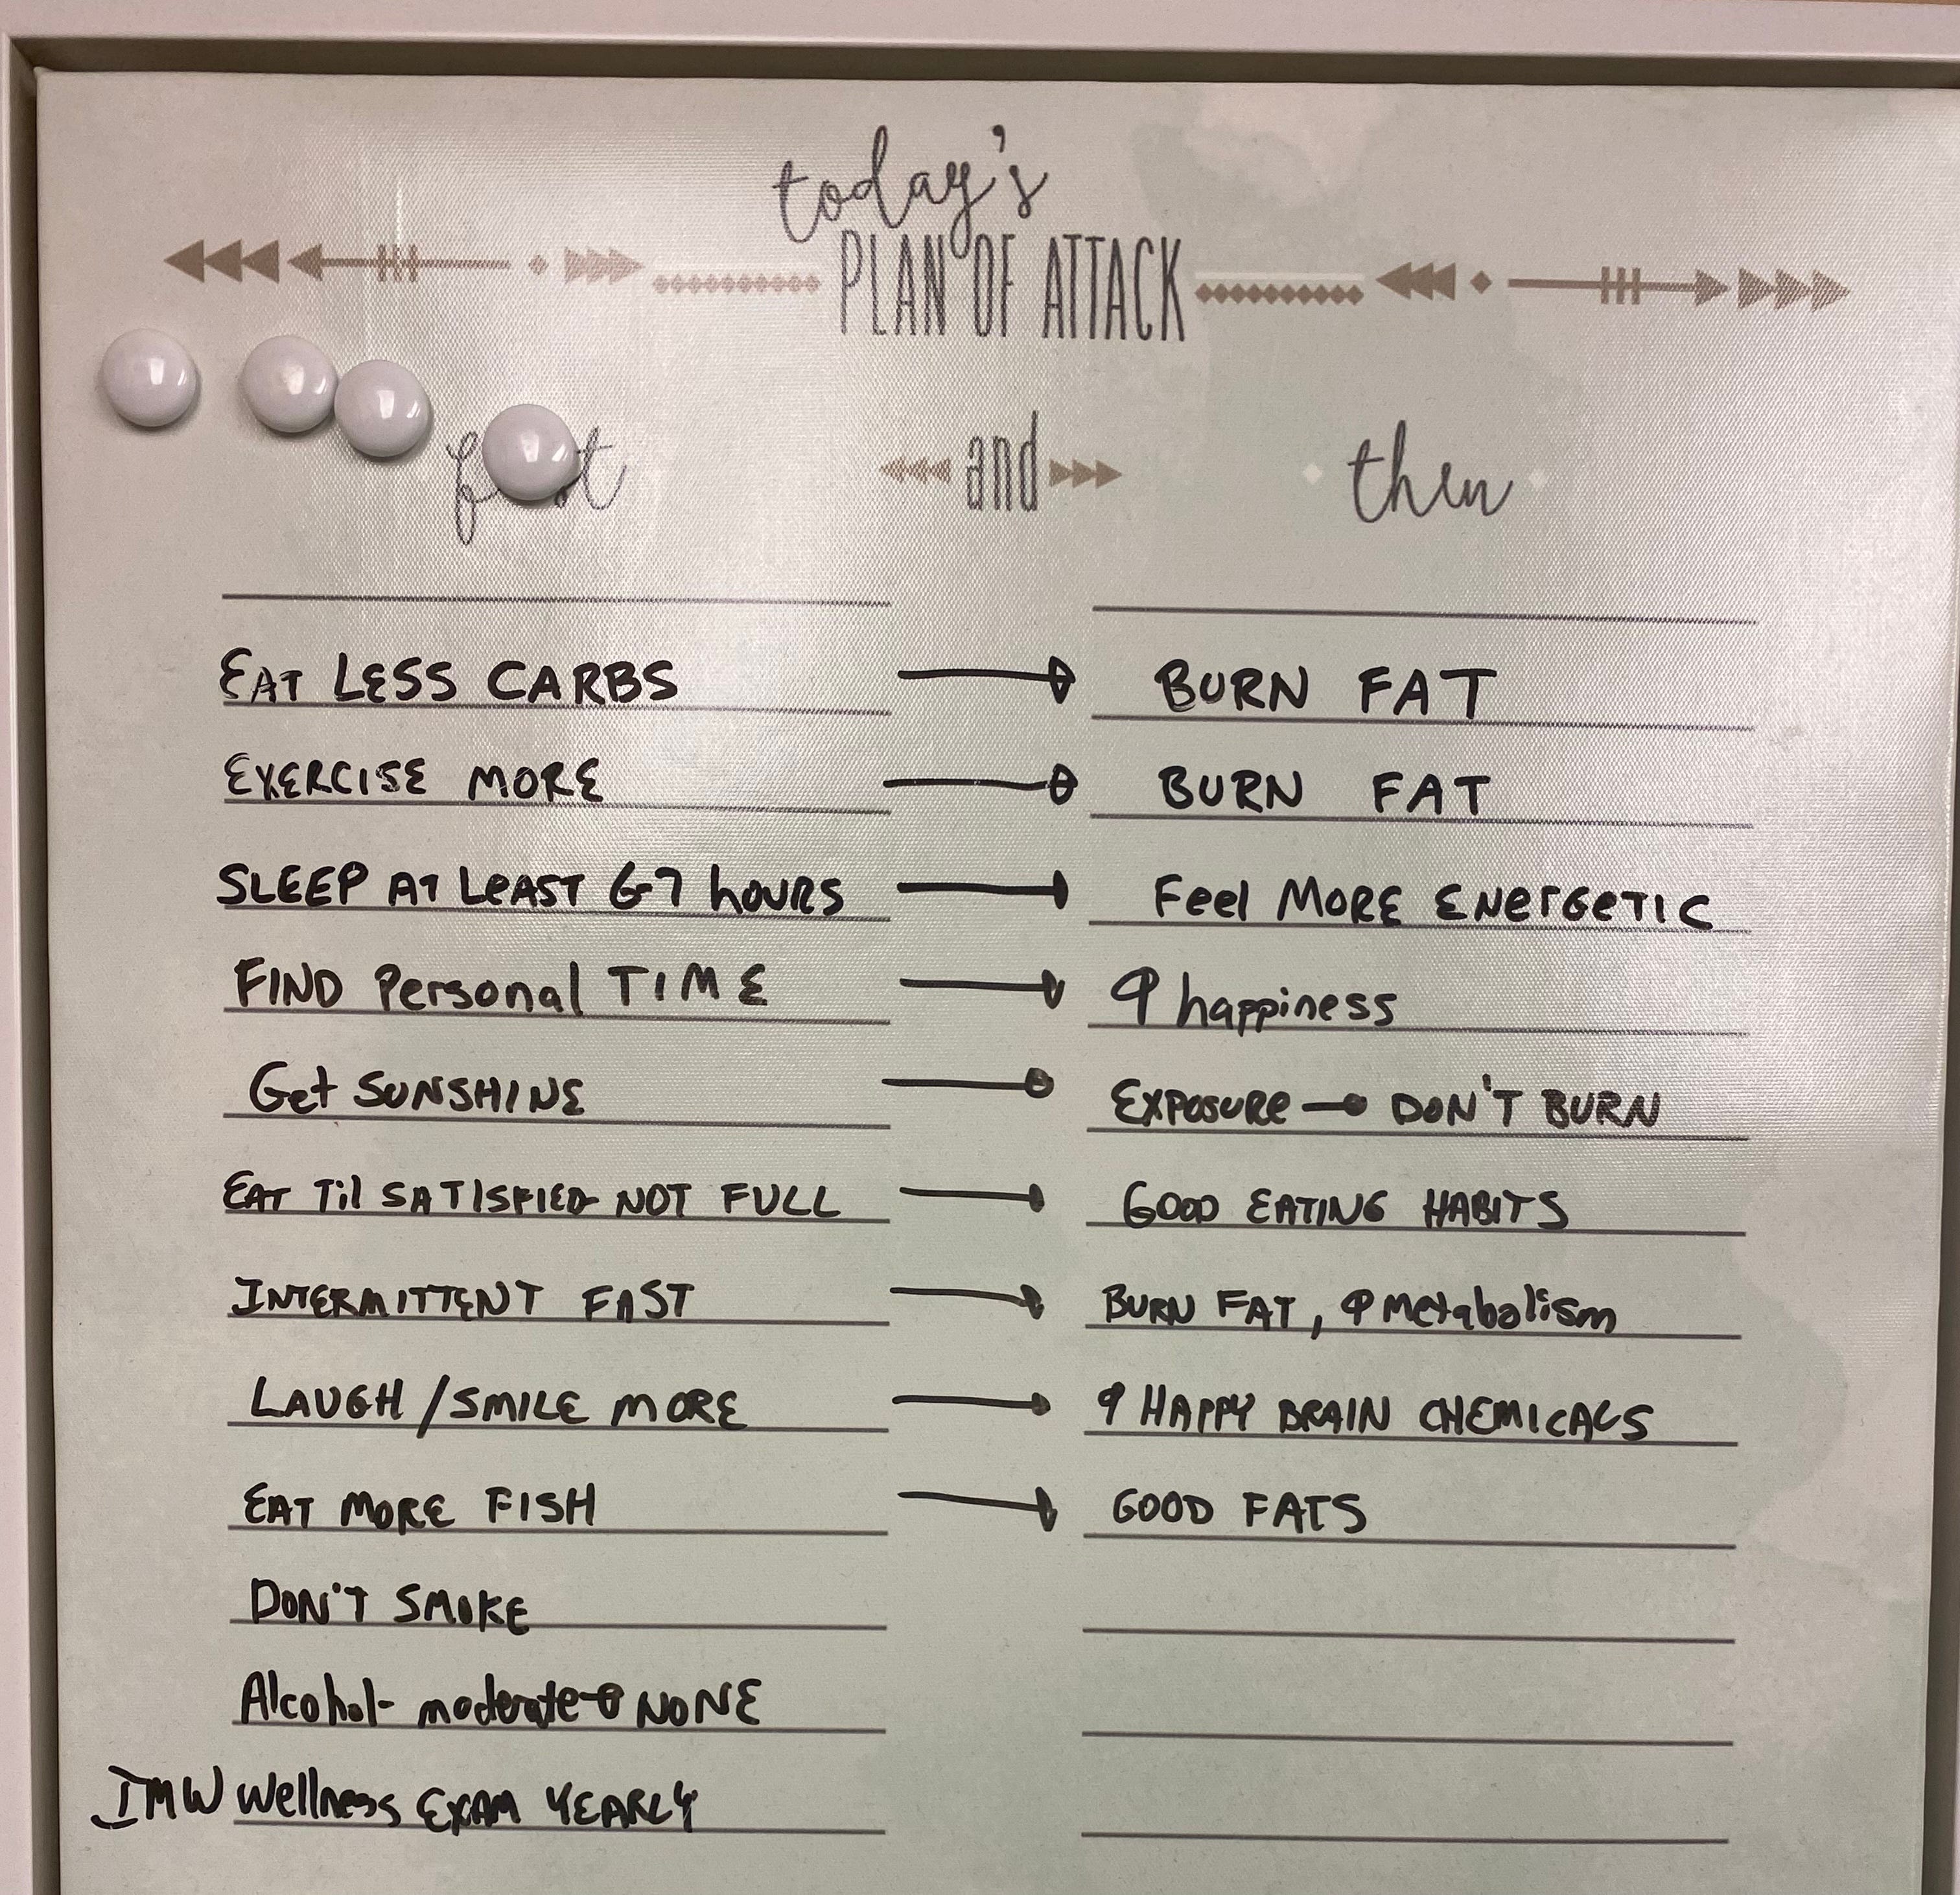 today's
PLAN OF ATTACK
and then
EAT LESS CARBS → BURN FAT
EXERCISE MORE → BURN FAT
SLEEP AT LEAST 6-7 hOURS → Feel MORE ENERGETIC
FIND Personal TIME → ↑ happiness
Get SUNSHINE → EXPOSURE → DON'T BURN
EAT Til SATISFIED NOT FULL → GOOD EATING HABITS
INTERMITTENT FAST → BURN FAT, ↑ Metabolism
LAUGH / SMILE MORE → ↑ HAPPY BRAIN CHEMICALS
EAT MORE FISH → GOOD FATS
DON'T SMOKE
Alcohol- moderate → NONE
IMW Wellness EXAM YEARLY